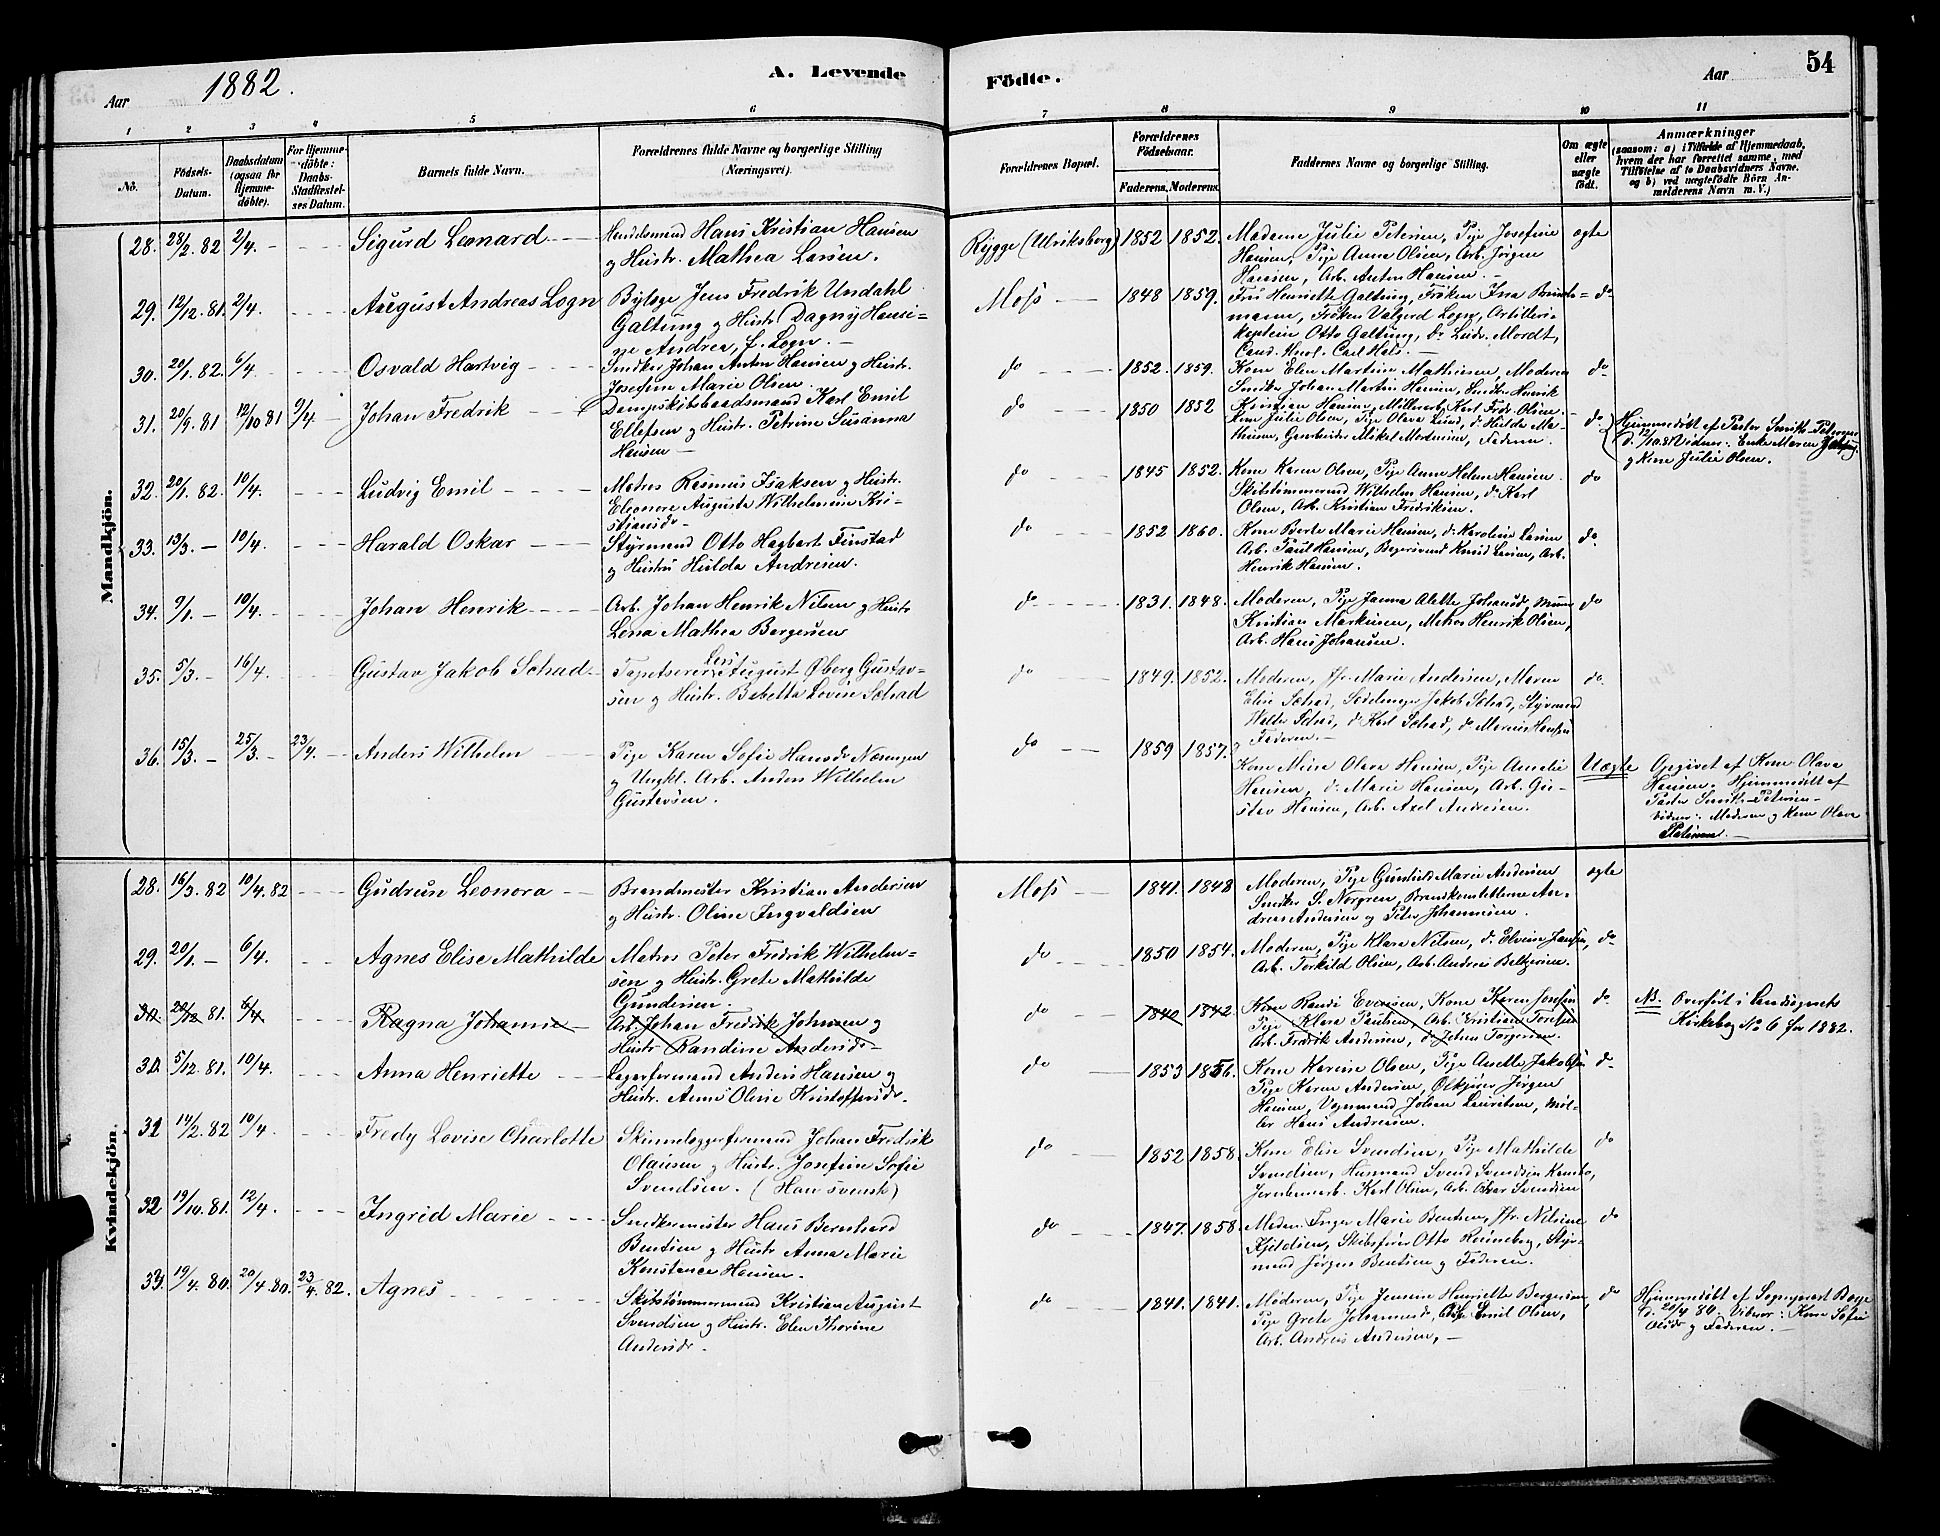 Aar 1882.
A. Levende
Födte.
Aar
54
1 2 3 4 5 6 7 8 9 10 11
No.
Födsels-Datum.
Daabsdatum (ogsaa for Hjemme-döbte).
For Hjemme-döbte: Daabs-Stadfæstel-ses Datum.
Barnets fulde Navn.
Forældrenes fulde Navne og borgerlige Stilling (Næringsvei).
Forældrenes Bopæl.
Forældrenes Födselsaar.
Faderens. Moderens.
Faddernes Navne og borgerlige Stilling.
Om ægte eller uægte födt.
Anmærkninger
(saasom: a) i Tilfælde af Hjemmedaab,
hvem der har forrettet samme, med
Tilföielse af to Daabsvidners Navne.
og b) ved uægtefödte Börn An-
melderens Navn m. V.)
Mandkjön.
28. 28/2. 82 2/4. Sigurd Leonard
Hans Kristian Hansen
og Hustr. Mathea Larsen.
Rygge (Ulriksborg) 1852 1852.
Madame Julie Petersen, Pige Josefine
Hansen, Pige Anna Olsen, Arb. Jørgen
Hansen, Arb. Anton Hansen.
ægte
29. 12/12. 81. 2/4. August Andreas Logn
Byfoge Jens Fredrik Undahl
Galtung og Hustr. Dagny Hansi-
ne Andrea, f. Logn.
Moss 1848 1859.
Fru Henriette Galtung, Frøken Ina
mann, Frøken Valgerd Logn, Artilleri-
kaptein Otto Galtung, do Ludv. Mordt,
Cand. Carl Hals.
do
30. 20/1. 82. 6/4. Osvald Hartvig
Sndkr. Johan Anton Hansen og Hustr.
Josefine Marie Olsen.
do 1852. 1859.
Kone Elen Martine Mathisen, Moderen
Snedker Johan Martin Hansen, Snedkr. Henrik
Kristian Hansen, Karl Fredr. Olsen.
do
31. 20/9. 81 12/10 81 9/4. Johan Fredrik
Dampskibsbaadsmand Karl Emil
Ellefsen og Hustr. Petrine Susanna
Hansen
do 1850 1852
Kone Julie Olsen, Pige Olava Lund, do Hilda Ma-
thisen, Mikel Mortensen, Faderen.
do
Hjemmedøbt af Pastor Smith-Petersen
d. 12/10.81 Vidner: Enke Maren
og Kone Julie Olsen.
32. 20/1. 82. 10/4. Ludvig Emil
Matros Rasmus Isaksen og Hustr.
Eleonore Augusta Wilhelmine Kri-
stiansdr.
do 1845 1852.
Kone Karen Olsen, Pige Anne Helene Hansen
Skibstømmermand Wilhelm Hansen, do Karl
Olsen, Arb. Kristian Fredriksen.
do
33. 13/3. – 10/4. Harald Oskar
Styrmand Otto Hagbart Finstad
og Hustru Hulda Andresen.
do 1852 1860.
Kone Berte Marie Hansen, do Karoline Larsen
Arb. Paul Hansen, Bøgersvend Knud Larsen, Arb.
Henrik Hansen.
do
34. 9/1. – 10/4. Johan Henrik
Arb. Johan Henrik Nilsen og Hustr
Lena Mathea Børgesen
do 1831. 1848.
Moderen, Pige Janna Alette Johansd,
Kristian Markusen, Matros Henrik Olsen,
Arb. Hans Johansen.
do
35. 5/3. – 16/4. Gustav Jakob Schad
Tapetserer August Øberg Gustav-
sen og Hustr. Babetta Lovise Schad
do 1849. 1852.
Moderen, Jfr. Marie Andersen, Maren
Elise Schad, Sadelmager Jakob Schad, Styrmand
Walter Schad, do Karl Schad, do Marius Hansen
Faderen.
do
36. 15/3. – 25/3. – 23/4. – Anders Wilhelm
Pige Karen Sofie Hansdr. Næringen
og Ungkl. Arb. Anders Wilhelm
Gustavsen.
do 1859 1857.
Kone Mina Olava Hansen, Pige Amalie
Hansen, do Marie Hansen, Arb. Gu-
stav Hansen, Arb. Axel Andresen.
Uægte
Opgivet af Kone Olava
Hansen. Hjemmedøbt af
Pastor Smith-Petersen
Vidner: Moderen og Kone Olava
Kvindekjön.
28. 16/3. 82 10/4. 82 Gudrun Leonora
Brandmester Kristian Andersen
og Hustr. Oline Ingvaldsen
Moss 1841. 1848
Moderen, Pige Gunhild Marie Andersen
Snedker S. Norgren, Brandkonstablerne An-
dreas Andersen og Peter Johannesen.
ægte
29. 20/1. – 6/4. Agnes Elise Mathilde
Matros Peter Fredrik Wilhelm-
sen og Hustr. Grete Mathilde
Gundersen.
do 1850 1854.
Moderen, Pige Klara Nilsen, do Elvine Jansen,
Arb. Torkild Olsen, Arb. Andreas Beltzersen.
do
30. 28/12 81. 6/4 Ragna Johanne
Arb. Johan Fredrik Johnsen og
Hustr. Randine Andersdr.
do 1840 1842.
Kone Randi Evensen, Kone Karen Jonsen
Pige Klara Paulsen, Arb. Kristian Torsen
Arb. Fredrik Andersen, do Johan Torgersen.
do
NB. Overført i Landsognets
Kirkebog No 6 for 1882.
30. 5/12. 81. 10/4. Anna Henriette
Lagerformand Anders Hansen og
Hustr. Anne Oline Kristoffersdr.
do 1853 1856.
Kone Karine Olsen, Pige Anette Jakobsen
Pige Karen Andersen, Ølkjører Jørgen
Hansen, Vognmand Johan Lauritsen, Møl-
ler Hans Andersen.
do
31 14/2. 82 10/4. Fredy Lovise Charlotte
Skinnelæggerformand Johan Fredrik
Olausen og Hustr. Josefine Sofie
Svendsen. (Han svensk)
do 1852 1858.
Kone Elise Svendsen, Pige Mathilde
Svendsen, Husmand Svend Svendsen
Jernbanearb. Karl Olsen, Arb. Oskar Svendsen
do
32 19/10. 81. 12/4. Ingrid Marie
Snedkermester Hans Bernhard
Bentsen og Hustr. Anna Marie
Konstance Hansen.
do 1847. 1858.
Madm. Inger Marie Bentsen, Jfr. Nilsine
Kjeldsen, Skibsfører Otto Rønneberg, Styr-
mand Jørgen Bentsen og Faderen.
do
33. 19/4. 80. 20/4. 80. 23/4. 82. Agnes
Skibstømmermand Kristian August
Svendsen og Hustr. Elen Thorine
Andersdr.
do 1841. 1841.
Moderen, Pige Jensine Henriette Børgesen,
Pige Grete Johannesd, Emil Olsen,
Arb. Andreas Andersen,
do
Hjemmedøbt af Sognepræst Bøge
d. 20/4 80. Vidner: Kone Sofie
Olsdr og Faderen.